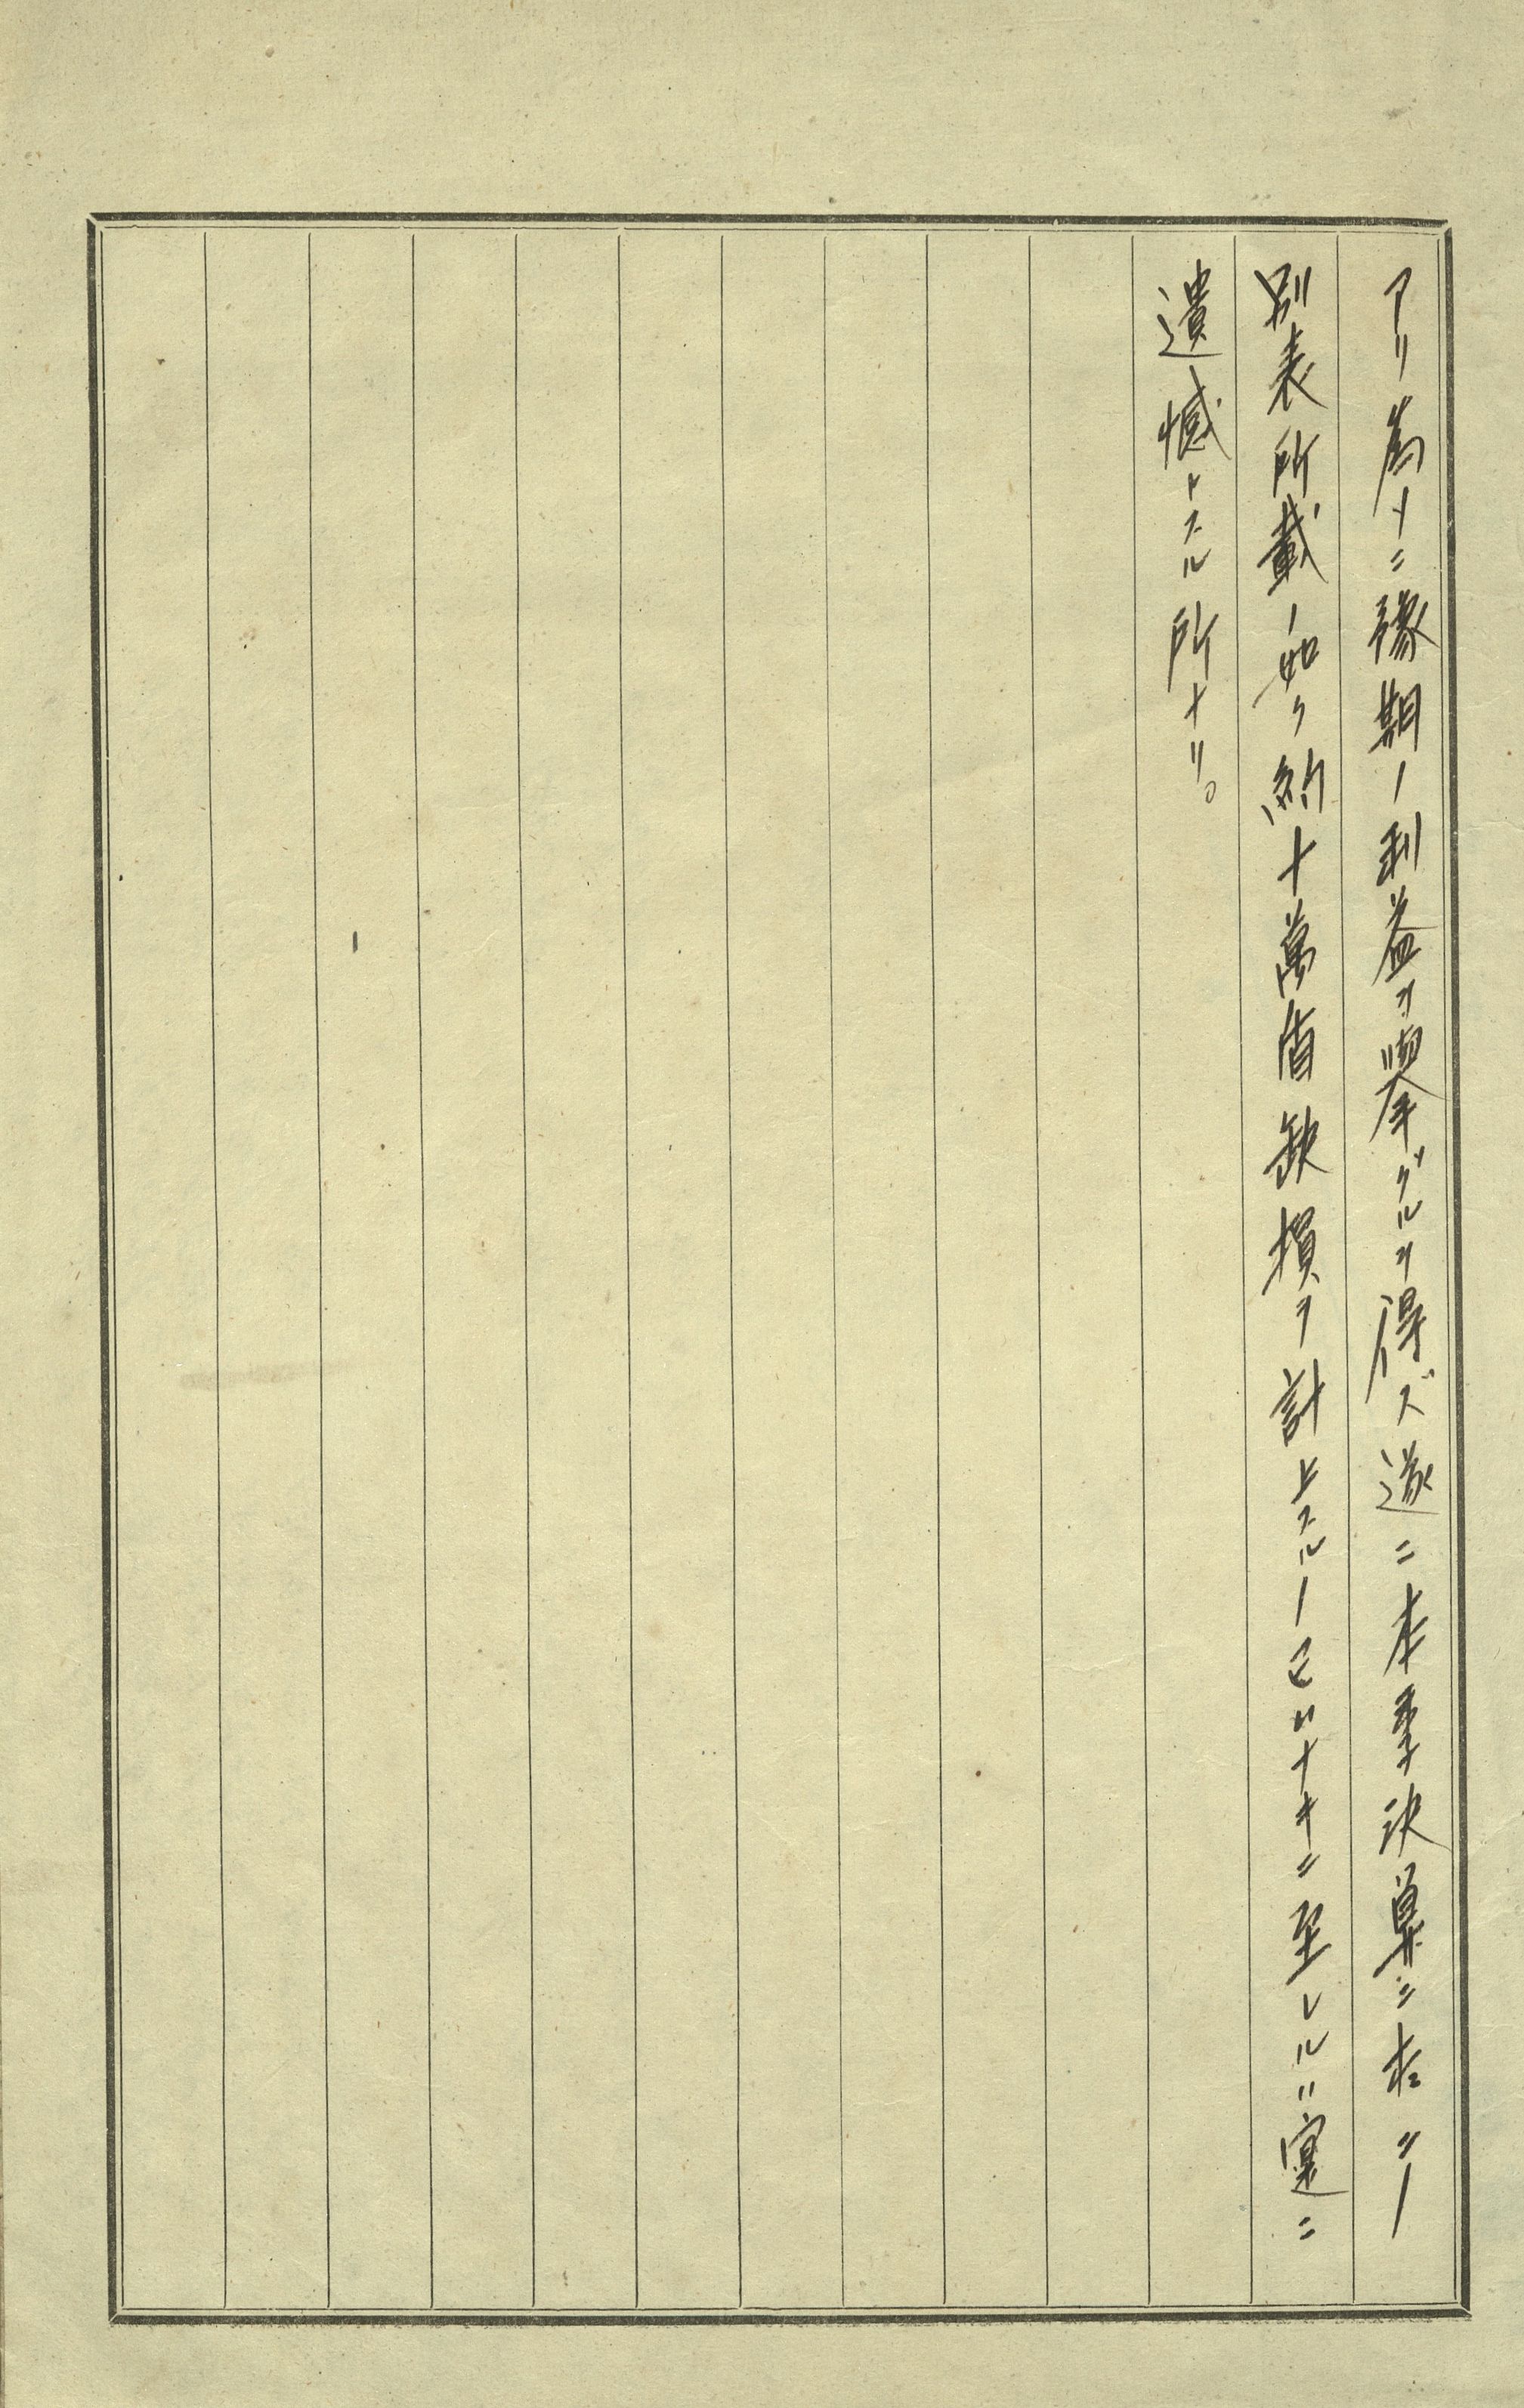 アリ為メニ豫期ノ利益ヲ擧グルヲ得ズ遂ニ本季決算ニ
別表所載ノ如ク約十萬盾缺損ヲ計上スルノ已ムナキニ至レルハ寔ニ
遺憾トスル所ナリ。